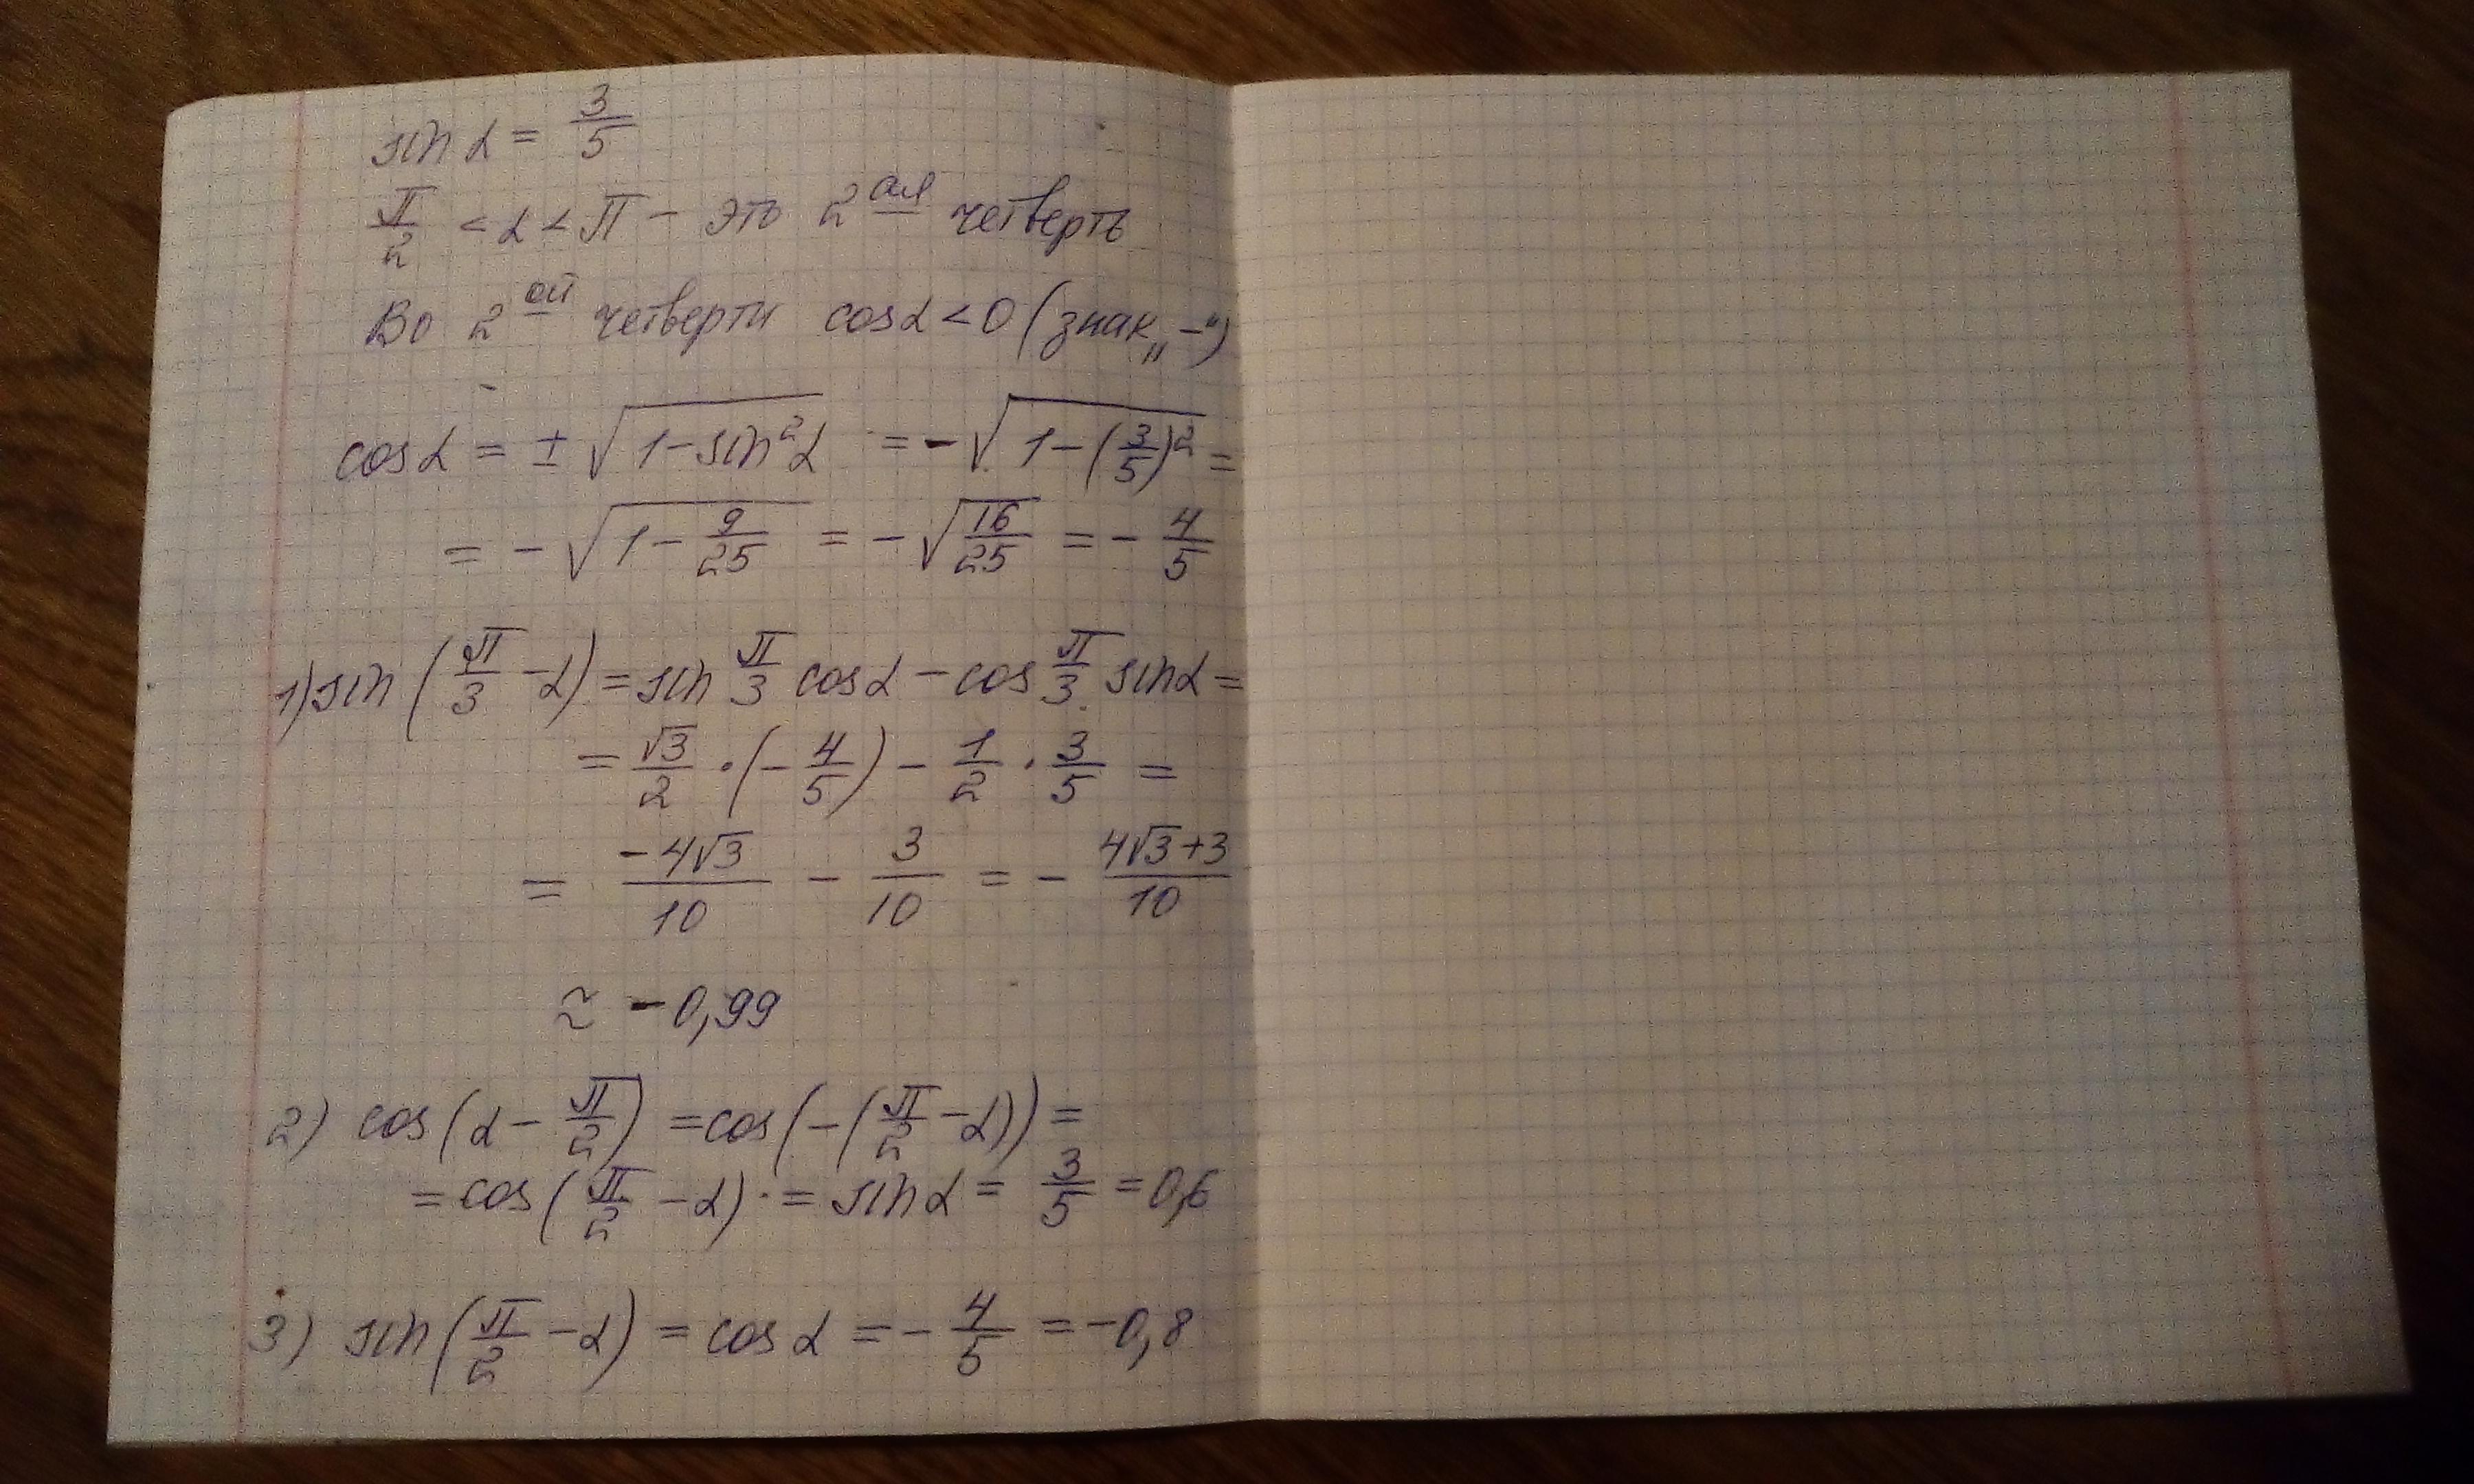 sin α = 3/5
π/2 < α < π – это 2ая четверть
Во 2ой четверти cos α < 0 (знак „–“)
cos α = ± √(1 – sin²α) = – √(1 – (3/5)²) =
= – √(1 – 9/25) = – √(16/25) = – 4/5
1) sin (π/3 – α) = sin π/3 cos α – cos π/3 sin α =
= √3/2 · (– 4/5) – 1/2 · 3/5 =
= –4√3/10 – 3/10 = – (4√3+3)/10
≈ –0,99
2) cos (α – π/2) = cos (–(π/2 – α)) =
= cos (π/2 – α) · = sin α = 3/5 = 0,6
3) sin (π/2 – α) = cos α = – 4/5 = –0,8